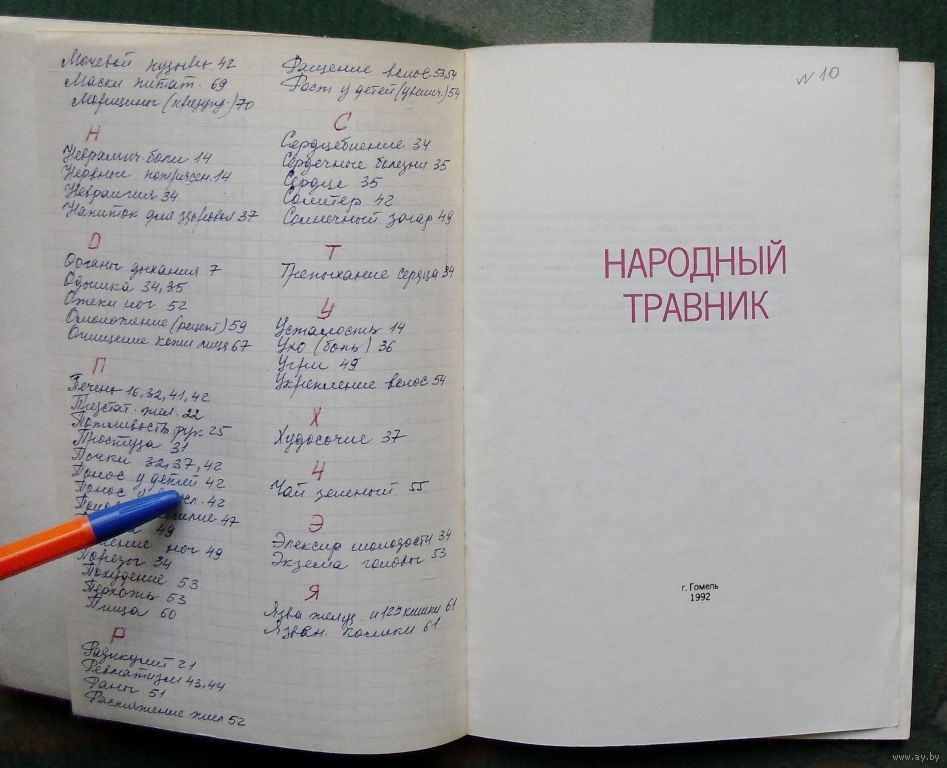 Мочевой пузырь 42
Маски питат. 69
Морщины 70
Н
Невралгич. боли 14
Нервные 14
Невралгия 34
Напиток для здоровья 37
О
Органы дыхания 7
Одышка 34, 35
Отеки ног 52
Омоложение (рецепт) 59
Очищение кожи лица 67
П
Печень 16, 32, 41, 42
Предстат. жел. 22
Потливость рук 25
Простуда 31
Почки 32, 37, 42
Понос у детей 42
Понос 42
47
49
ног 49
Порезы 34
Похудение 53
Перхоть 53
Пища 60
Р
Радикулит 21
Ревматизм 43, 44
Раны 51
Растяжение жил 52
Ращение волос 53, 54
Рост у детей (увелич.) 54
С
Сердцебиение 34
Сердечные болезни 35
Сердце 35
Солитер 42
Солнечный загар 49
Т
Трепыхание сердца 34
У
Усталость 14
Ухо (боль) 36
Угри 49
Укрепление волос 54
Х
Худосочие 37
Ч
Чай зеленый 55
Э
Элексир молодости 34
Экзема головы 53
Я
Язва желуд. и 12 кишки 61
Язвен. колики 61
N 10
НАРОДНЫЙ
ТРАВНИК
г. Гомель
1992
www.ay.by